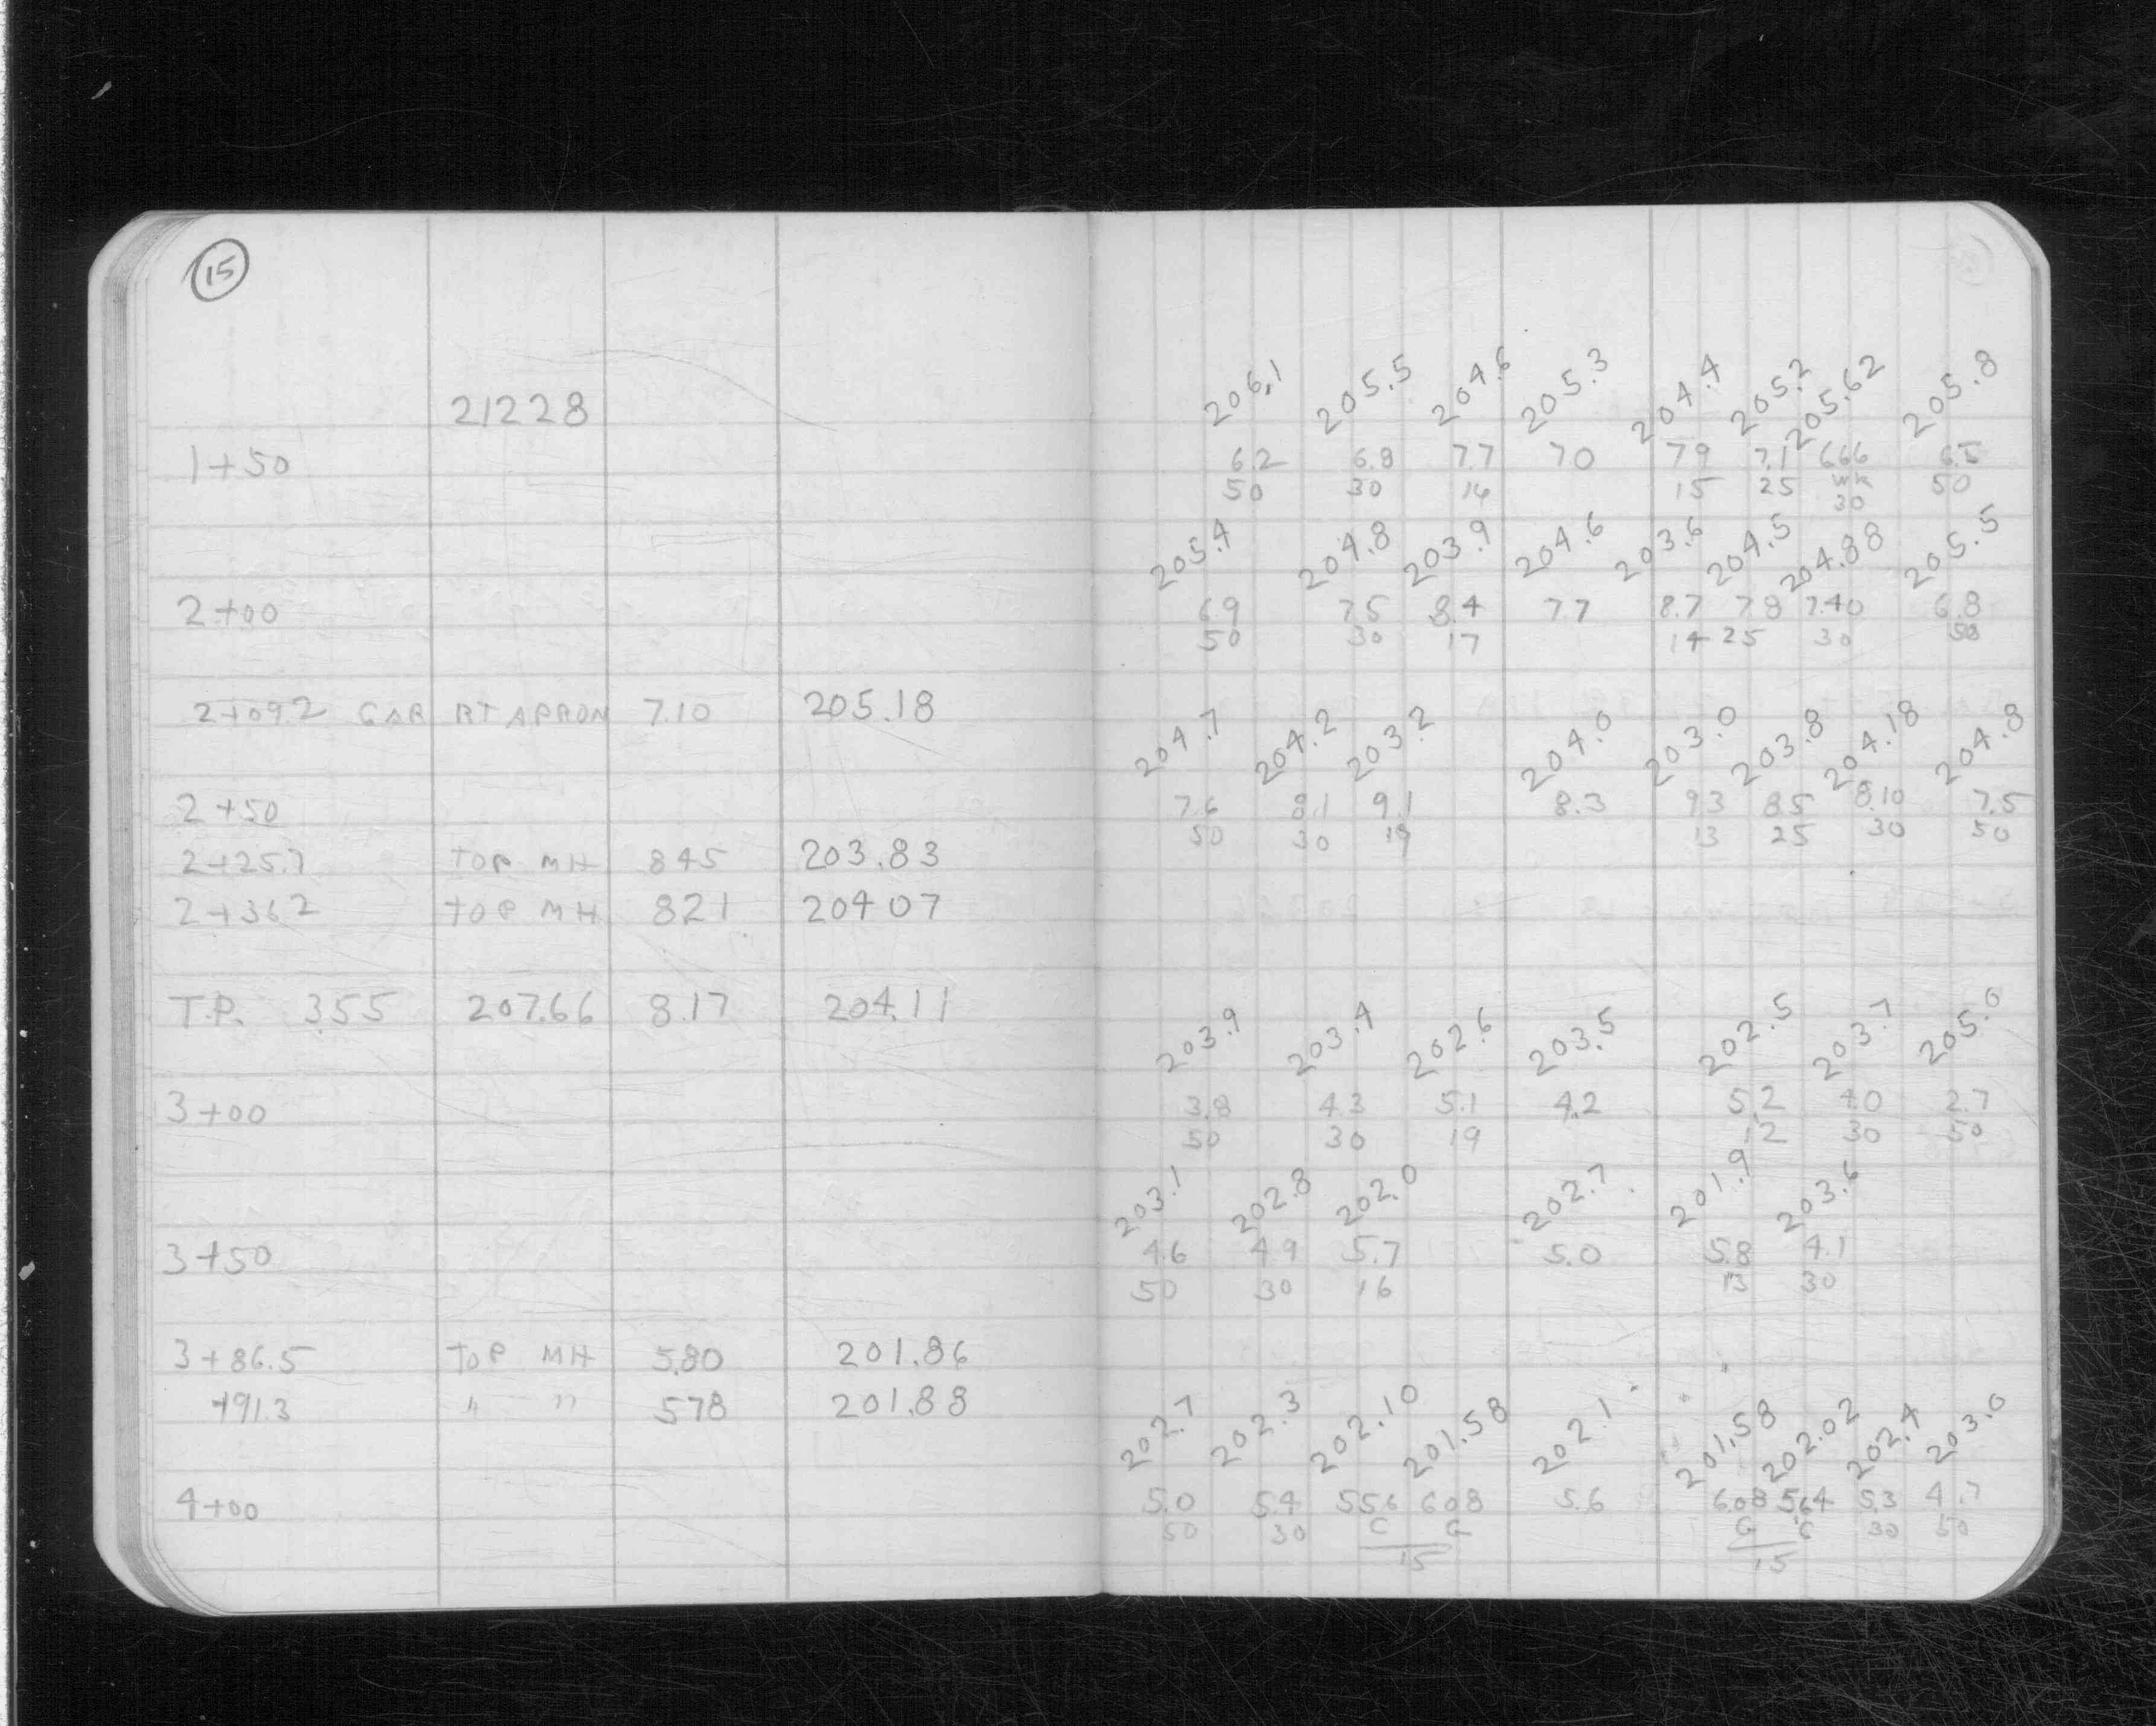 15
21228
1+50
2+00
2+09.2 GAR RT APRON 7.10 205.18
2+50
2+25.7 TOP MH 845 203.83
2+36.2 TOP MH 821 204 07
T.P. 3.55 207.66 8.17 204.11
3+00
3+50
3+86.5 TOP MH 5.80 201.86
+91.3 " " 578 201.88
4+00
206.1 205.5 204.6 205.3 204.4 205.2 205.62 205.8
6.2 6.8 7.7 7.0 7.9 7.1 666 6.5
50 30 16 15 25 WK 50
30
205.4 204.8 203.9 204.6 203.6 204.5 204.88 205.5
6.9 7.5 8.4 7.7 8.7 7.8 7.40 6.8
50 30 17 14 25 30 50
204.7 204.2 203.2 204.0 203.0 203.8 204.18 204.8
7.6 8.1 9.1 8.3 9.3 8.5 8.10 7.5
50 30 19 13 25 30 50
203.9 203.4 202.6 203.5 202.5 203.7 205.0
3.8 4.3 5.1 4.2 5.2 4.0 2.7
50 30 19 12 30 50
203.1 202.8 202.0 202.7 201.9 203.6
4.6 4.9 5.7 5.0 5.8 4.1
50 30 16 13 30
202.7 202.3 202.10 201.58 202.1 201.58 202.02 202.4 203.0
5.0 5.4 5.56 6.08 5.6 6.08 5.64 5.3 4.7
50 30 C G G C 30 50
15 15